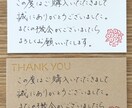 この度はご購入いただきまして
誠にありがとうございました。
またの機会がございましたら
よろしくお願いいたします。
THANK YOU
この度はご購入いただきまして
誠にありがとうございました。
またの機会がございましたら